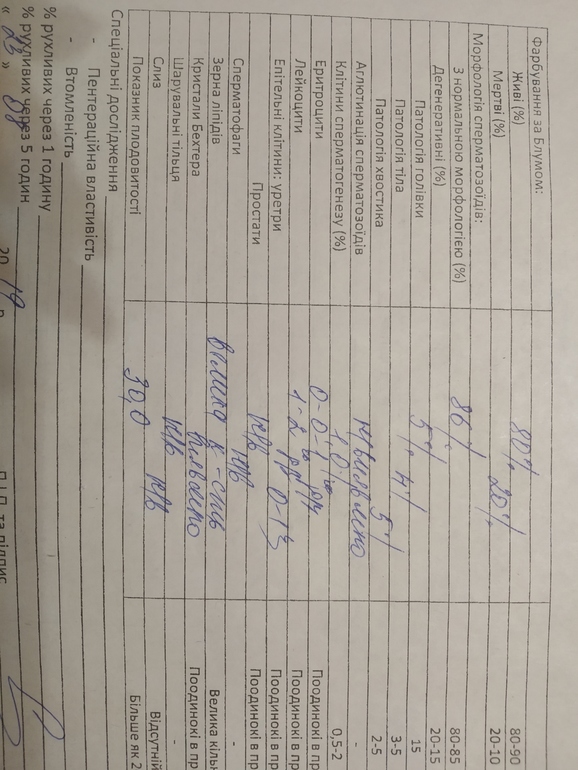 Фарбування за Блумом:
Живі (%) 80% 80-90
Мертві (%) 20% 20-10
Морфологія сперматозоїдів:
З нормальною морфологією (%) 86% 80-85
Дегенеративні (%) 20-15
Патологія голівки 5% 15
Патологія тіла 4% 3-5
Патологія хвостика 5% 2-5
Аглютинація сперматозоїдів -
Клітини сперматогенезу (%) 1,0% 0,5-2
Еритроцити 0-0-1 Поодинокі в пр
Лейкоцити 1-2 Поодинокі в пр
Епітельні клітини: уретри 0-1 Поодинокі в пр
Простати н/в Поодинокі в пр
Сперматофаги н/в -
Зерна ліпідів велика к-сть Велика кільк
Кристали Бехтера Поодинокі в пр
Шарувальні тільця н/в -
Слиз н/в Відсутній
Показник плодовитості 39,0 Більше як 2
Спеціальні дослідження
- Пентераційна властивість
- Втомленість
% рухливих через 1 годину
% рухливих через 5 годин
« 23 » 20 19 р П.І.П. та підпис